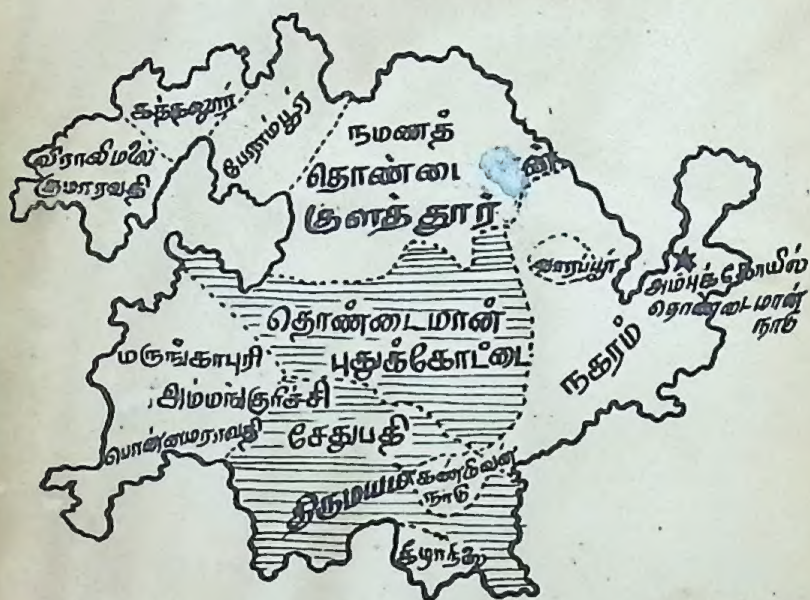 கத்தலூர்
விராலிமலை
குமாரவதி
பேராம்பூர்
நமணத்
தொண்டை ன்
குளத்தூர்
வாரப்பூர்
அம்புக்கோயில்
தொண்டைமான்
நாடு
நகரம்
தொண்டைமான்
புதுக்கோட்டை
மருங்காபுரி
அம்மங்குரிச்சி
பொன்னமராவதி
சேதுபதி
திருமயம்
நாடு